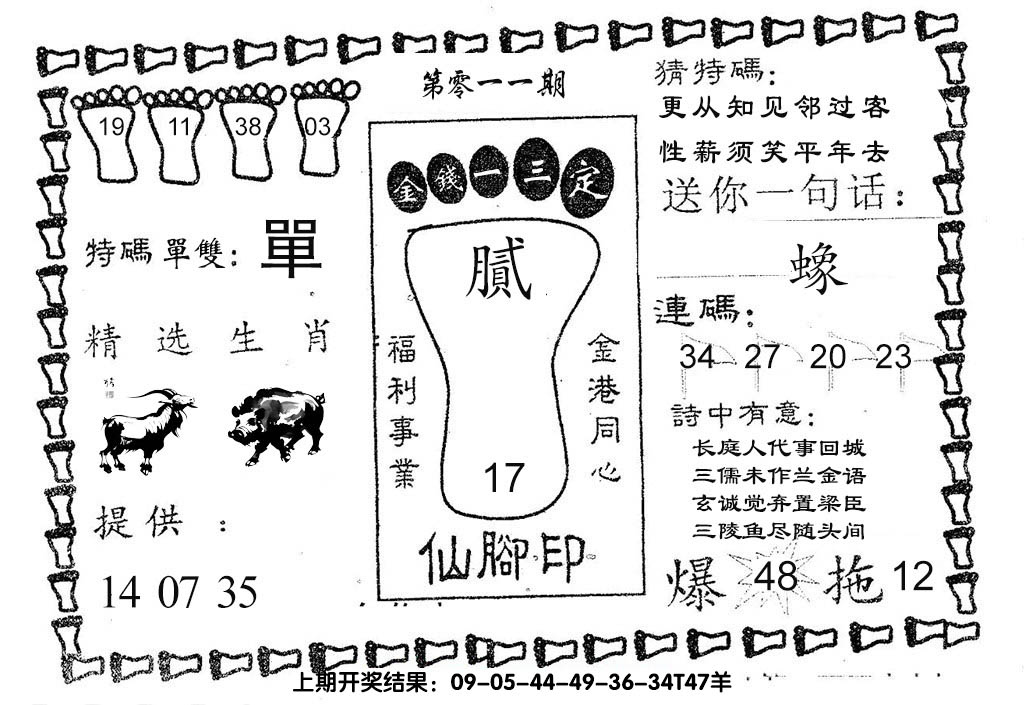 第零一一期
19 11 38 03
特碼單雙：單
精选生肖
提供：
14 07 35
金錢一三定
膩
福利事業
金港同心
17
仙腳印
猜特碼：
更从知见邻过客
性薪须笑平年去
送你一句话：
蟓
連碼：
34 27 20 23
詩中有意：
长庭人代事回城
三儒未作兰金语
玄诚觉弃置梁臣
三陵鱼尽随头间
爆 48 拖 12
上期开奖结果：09-05-44-49-36-34T47羊